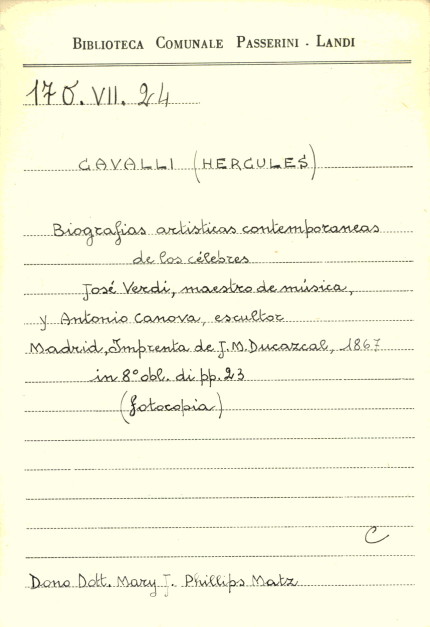 BIBLIOTECA COMUNALE PASSERINI - LANDI
170.VII.24
CAVALLI (HERCULES)
Biografias artisticas contemporaneas
de los célebres
José Verdi, maestro de música,
y Antonio Canova, escultor
Madrid, Imprenta de J.M. Ducazcal, 1867
in 8° obl. di pp. 23
(fotocopia)
C
Dono Dott. Mary J. Phillips Matz